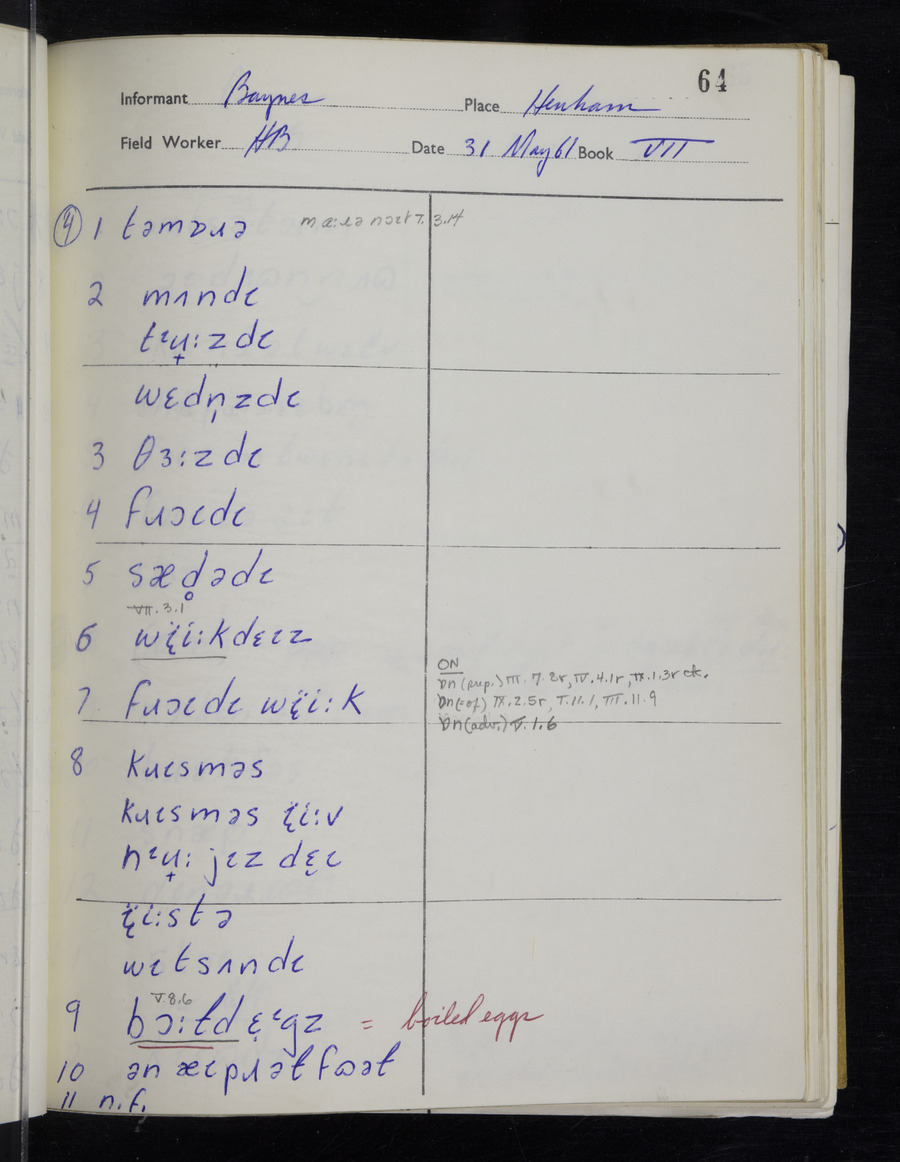 64
Informant Baynes Place Henham
Field Worker HB Date 31 May 61 Book VII
④ 1 təmɒɹə mɑ:ɹə nɔɪt V. 3.14
2 mʌndɩ
tᶦʉ̟:zdɩ
wɛdn̩zdɩ
3 θɜ:zdɩ
4 fɹɔɩdɩ
5 sæd̥ədɩ
VII.3.1
6 wɩ̈i:kdɛɩz
7 fɹɔɩdɩ wɩ̈i:k
ON
ɒn (prep.) III.7.2r, IV.4.1r, IX.1.3r etc.
ɒn (=of) IX.2.5r, V.11.1, III.11.9
ɒn (adv.) V.1.6
8 kɹɩsməs
kɹɩsməs ɩ̈i:v
nᶦʉ̟: jɪz dɛ̞ɩ
ɩ̈i:stə
wɩtsʌndɩ
V.8.6
9 bɔ:ɫd ɛ̞ᶦgz = boiled eggs
10 ən æɩpɹəɫ fʊəɫ
11 n.f.